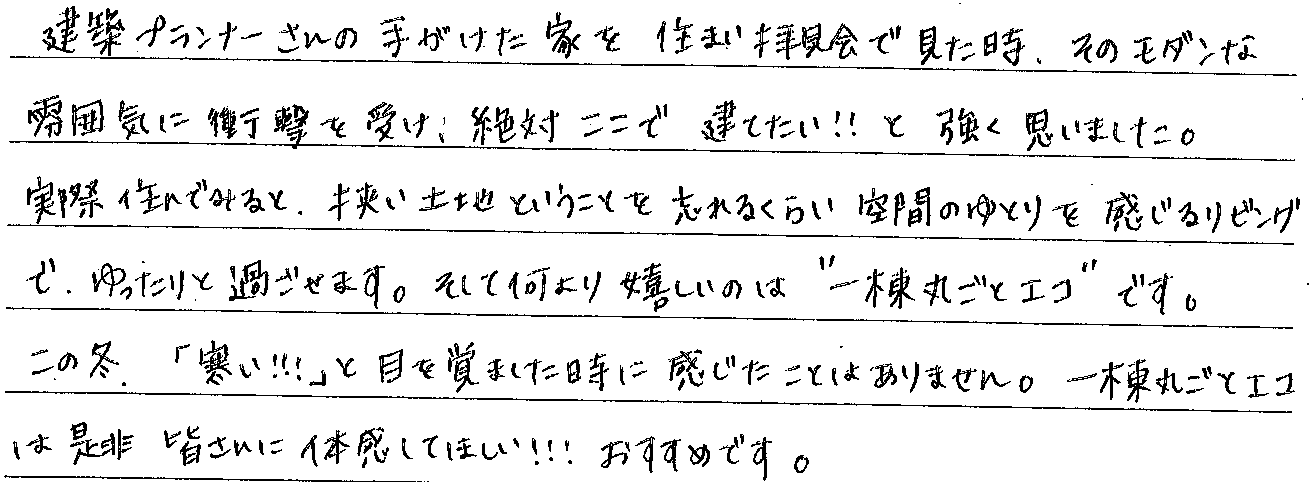 建築プランナーさんの手がけた家を住まい拝見会で見た時、そのモダンな
雰囲気に衝撃を受け、絶対ここで建てたい!!と強く思いました。
実際住んでみると、狭い土地ということを忘れるくらい空間のゆとりを感じるリビング
で、ゆったりと過ごせます。そして何より嬉しいのは"一棟丸ごとエコ"です。
この冬、「寒い!!!」と目を覚ました時に感じたことはありません。一棟丸ごとエコ
は是非皆さんに体感してほしい!!!おすすめです。